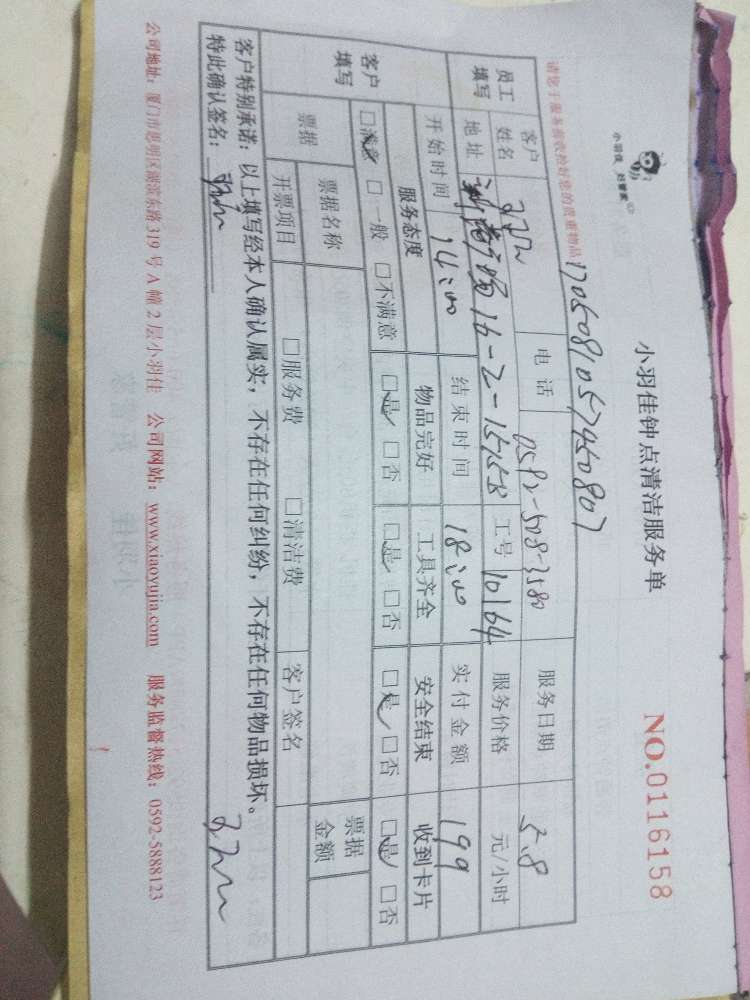 小羽佳 好管家
小羽佳钟点清洁服务单
NO.0116158
请您于服务前收拾好您的贵重物品
1705081057450807
员工填写
客户姓名
电话
0592-508-3580
服务日期
5.8
地址
16-2-1515B
工号
10164
服务价格
元/小时
客户填写
开始时间
14:00
结束时间
18:00
实付金额
199
服务态度
物品完好
工具齐全
安全结束
收到卡片
□满意 □一般 □不满意
□是 □否
□是 □否
□是 □否
□是 □否
票据
票据名称
票据金额
开票项目
□服务费
□清洁费
客户签名
客户特别承诺:以上填写经本人确认属实,不存在任何纠纷,不存在任何物品损坏。
特此确认签名:
公司地址:厦门市思明区湖滨东路319号A幢2层小羽佳 公司网站:www.xiaoyujia.com 服务监督热线:0592-5888123